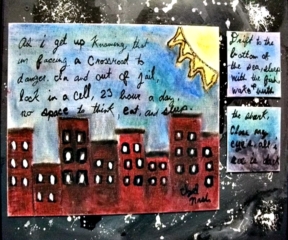 As I get up knowing that
im facing a Crossroad to
danger, in and out of jail,
lock in a cell, 23 hour a day,
no space to think, eat, an sleep.
Drift to the
bottom of
the sea, sleep
with the fish,
the shark,
Close my
eyes, all I
see is